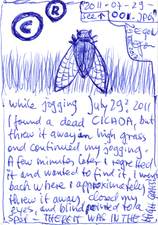 C R
2011-07-29
SEE ↑ 001.JPG!
while jogging July 29, 2011
I found a dead CICADA, but
threw it away in high grass
and continued my jogging.
A few minutes later I regretted
it and wanted to find it. I went
back where I approximately
threw it away, closed my
eyes, and blind pointed to a
spot – THERE IT WAS IN THE